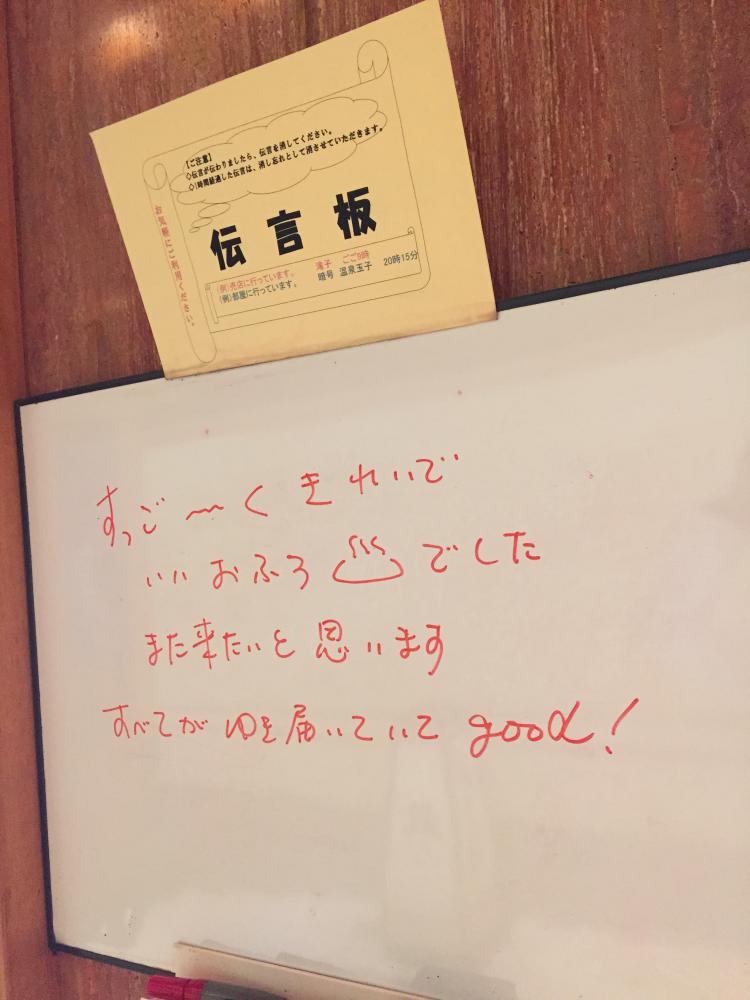 【ご注意】
◇伝言が伝わりましたら、伝言を消してください。
◇1時間経過した伝言は、消し忘れとして消させていただきます。
お気軽にご利用ください。
伝言板
(例)売店に行っています。 滝子 ごご8時
(例)部屋に行っています。 暗号 温泉玉子 20時15分
すっご〜く きれいで
いい おふろ ♨ でした
また来たいと 思います
すべてが ゆき届いていて good!